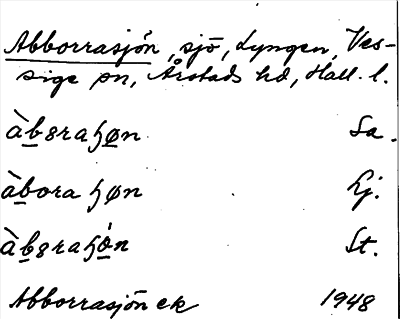 Abborrasjön, sjö, Lyngen, Ves-
sige sn, Årstads hd, Hall. l.
àbɞraɧøn Sa.
àboraɧøn Lj.
àbɞraɧǿn St.
Abborrasjön ek 1948